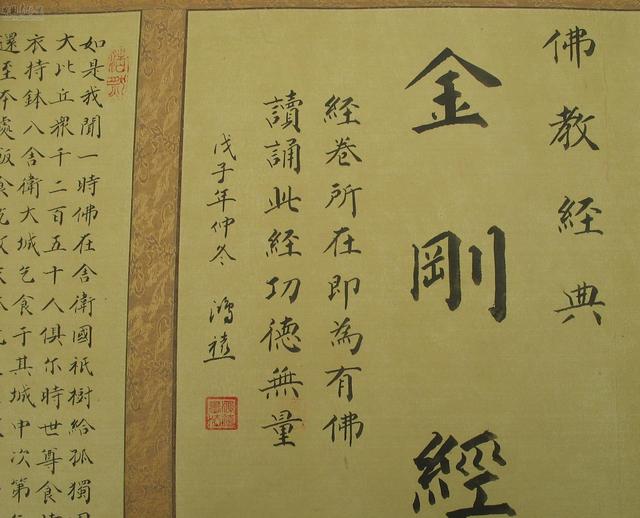 佛教經典
金剛經
經卷所在即為有佛
讀誦此經功德無量
戊子年仲冬
如是我聞一時佛在舍衛國祇樹給孤獨
大比丘眾千二百五十人俱尔時世尊食
衣持鉢入舍衛大城乞食于其城中次第
還至本處飯食